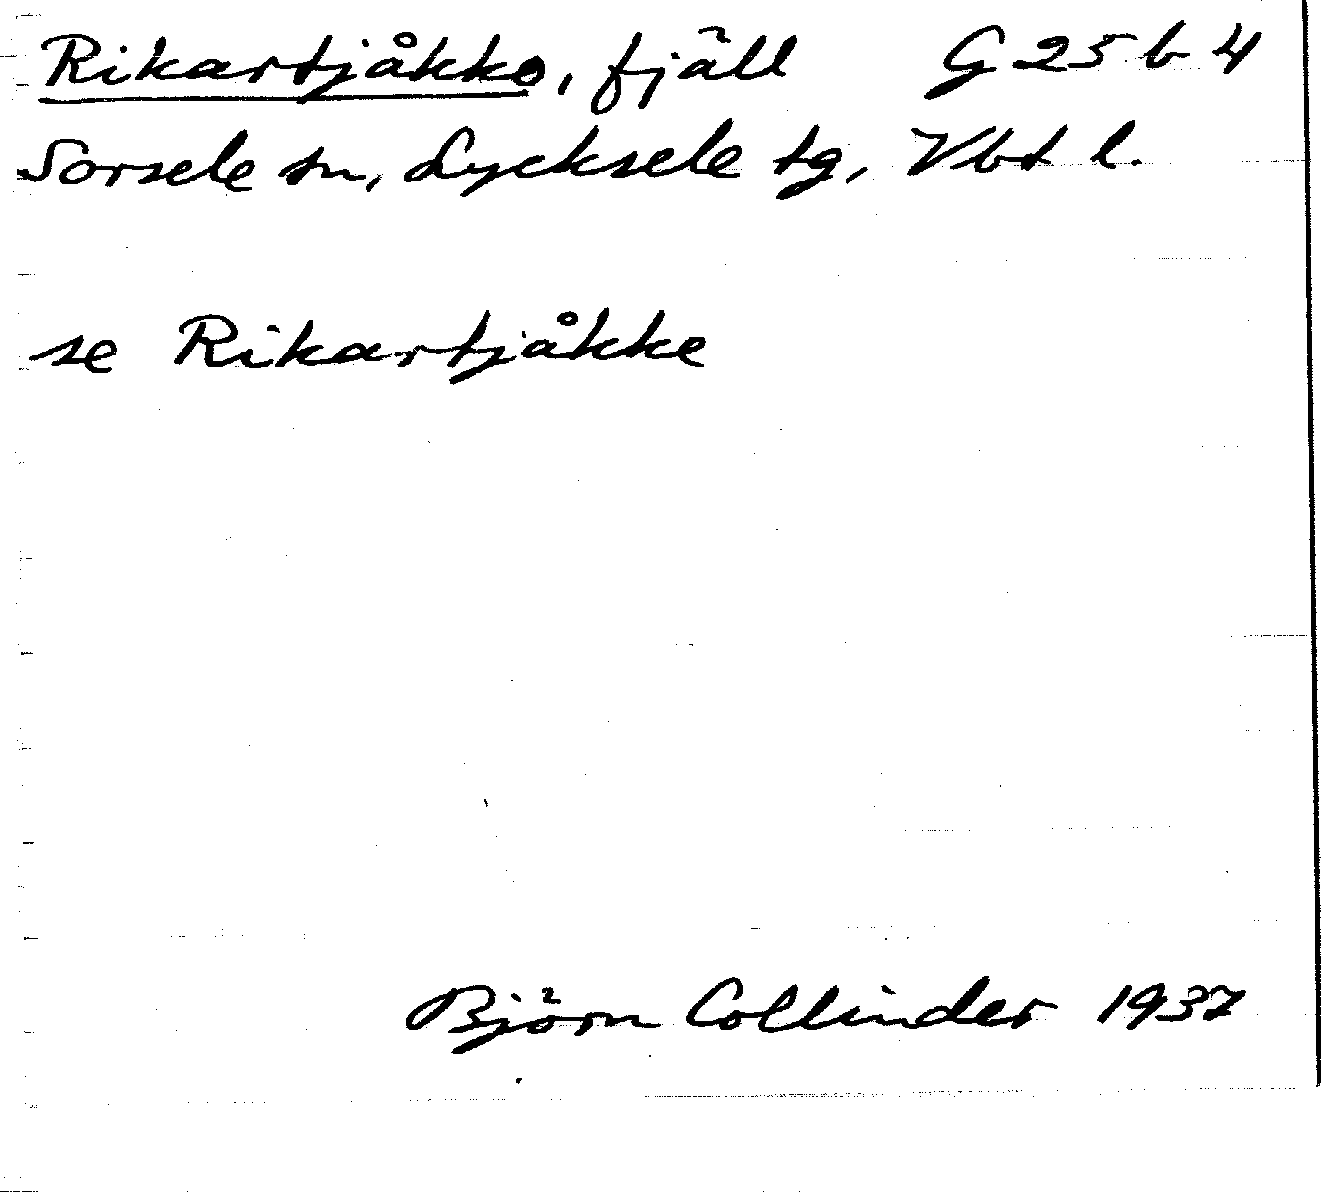 Rikartjåkko, fjäll G 25 b 4
Sorsele sn, Lycksele tg, Vbt l.
se Rikartjåkke
Björn Collinder 1937